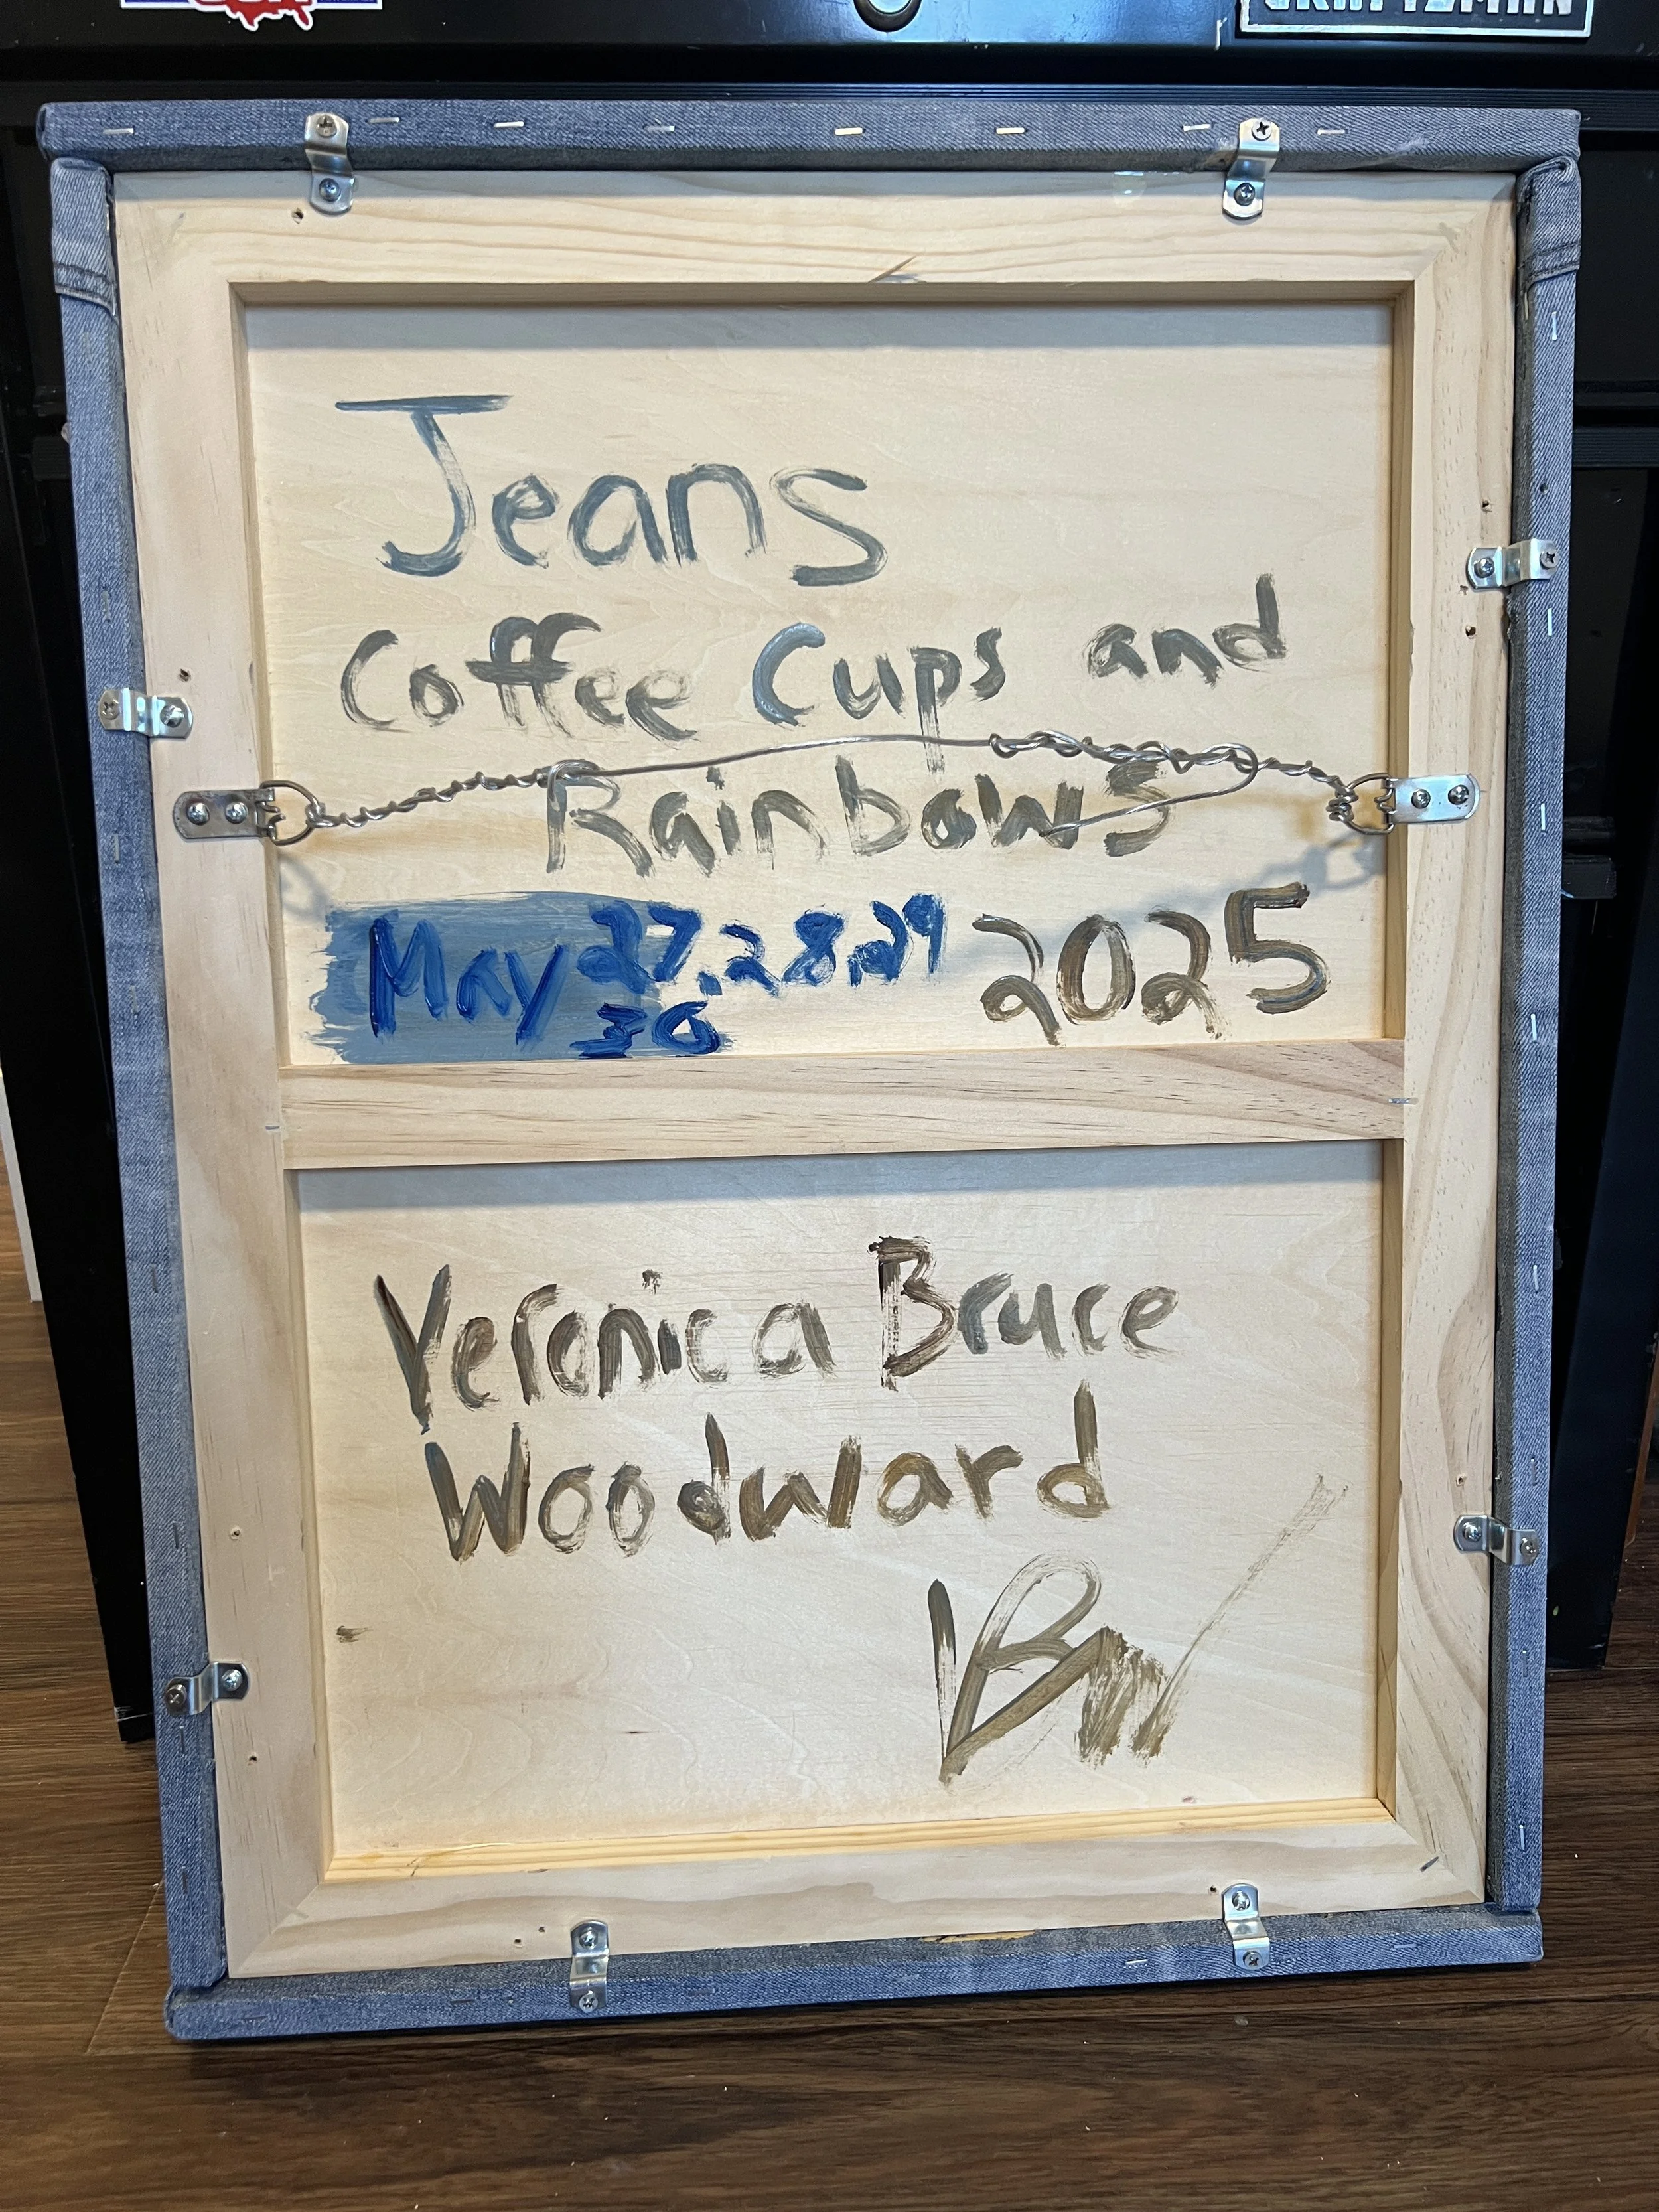 USA
CRAFTSMAN
Jeans
Coffee Cups and
Rainbows
May 27, 28, 29 2025
30
Veronica Bruce
Woodward
VBW